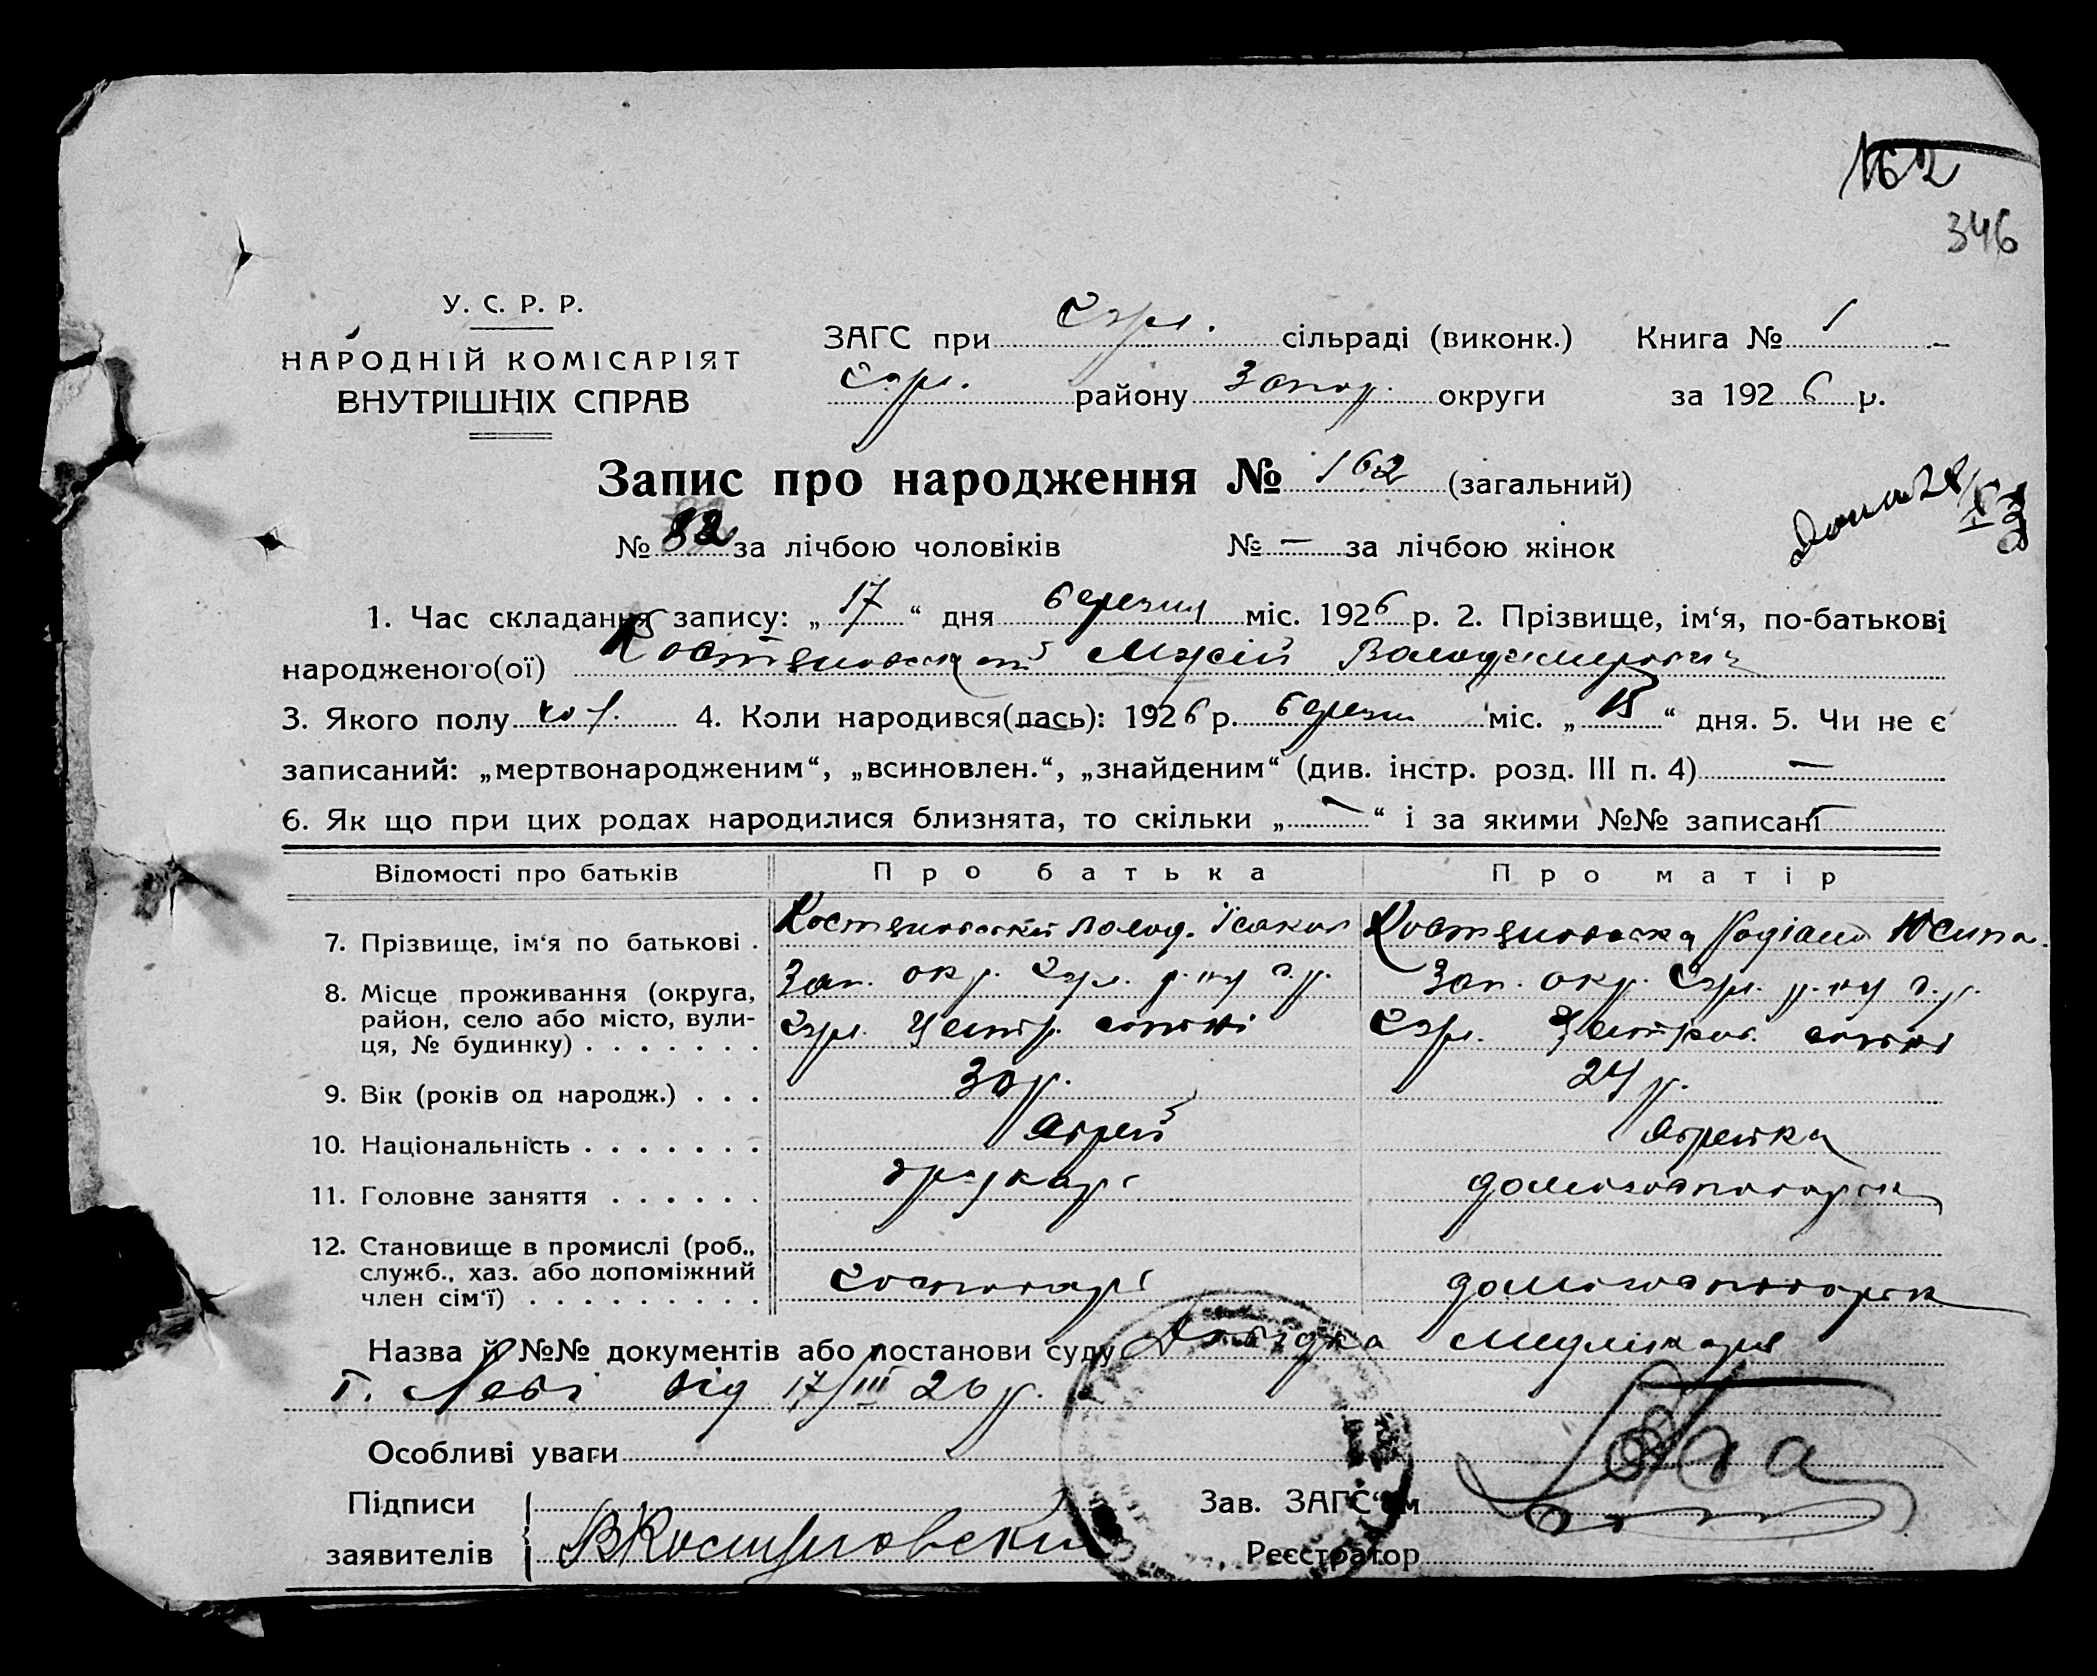 162
346
У. С. Р. Р.
НАРОДНІЙ КОМІСАРІЯТ
ВНУТРІШНІХ СПРАВ
ЗАГС при сільраді (виконк.) Книга № 1
району Запор. округи за 1926 р.
Запис про народження № 162 (загальний)
№ 82 за лічбою чоловіків № — за лічбою жінок
1. Час складання запису: „17“ дня березня міс. 1926 р. 2. Прізвище, ім‘я, по-батькові
народженого(ої) Володимирович
3. Якого полу чол. 4. Коли народився(лась): 1926 р. березня міс. „15“ дня. 5. Чи не є
записаний: „мертвонародженим“, „всиновлен.“, „знайденим“ (див. інстр. розд. III п. 4) —
6. Як що при цих родах народилися близнята, то скільки „—“ і за якими №№ записані —
Відомості про батьків Про батька Про матір
7. Прізвище, ім‘я по батькові . Волод. Юсипа.
8. Місце проживання (округа, Зап. окр. Зап. окр.
район, село або місто, вули- Центр. сотні сотні
ця, № будинку) . . . . . . .
9. Вік (років од народж.) . . . 30 р. 24 р.
10. Національність . . . . . . . єврей єврейка
11. Головне заняття . . . . . . друкарь домогосподарка
12. Становище в промислі (роб.,
служб., хаз. або допоміжний господарь домогосподарк
член сім‘ї) . . . . . . . . . .
Назва й №№ документів або постанови суду Довідка
від 17/III 26 р.
Особливі уваги
Підписи Зав. ЗАГС‘ом
заявителів Реєстратор